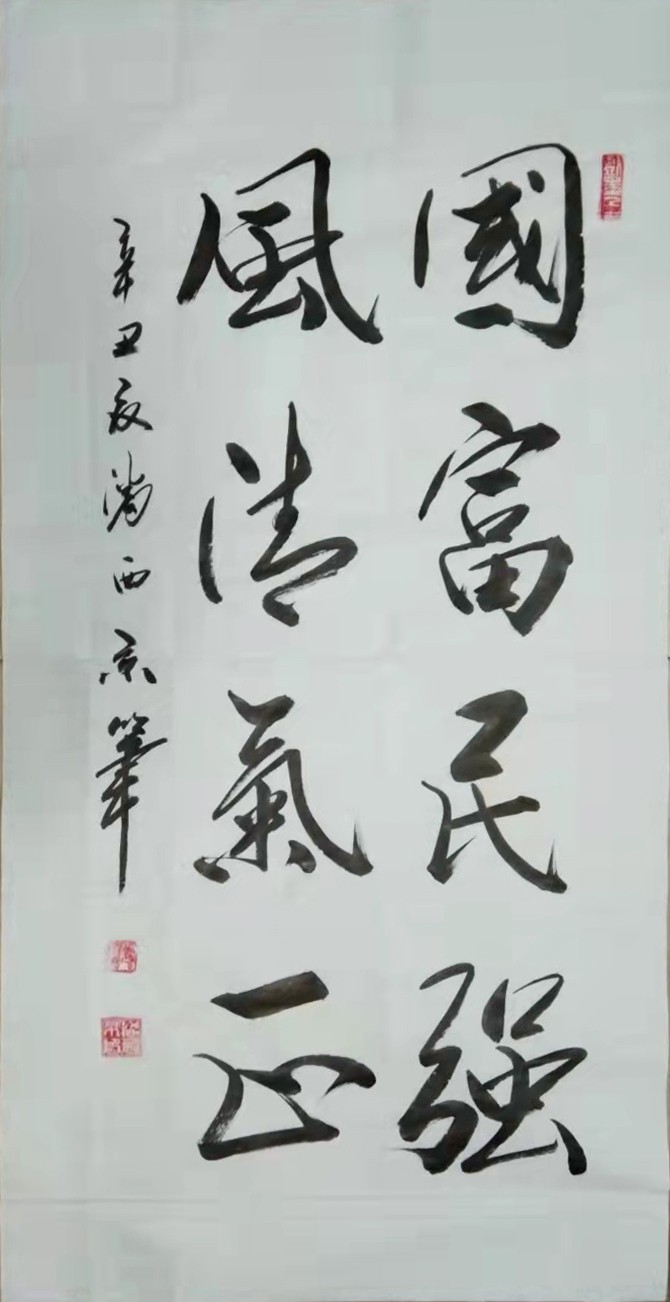 國富民强
風清氣正
辛丑友滿西京筆